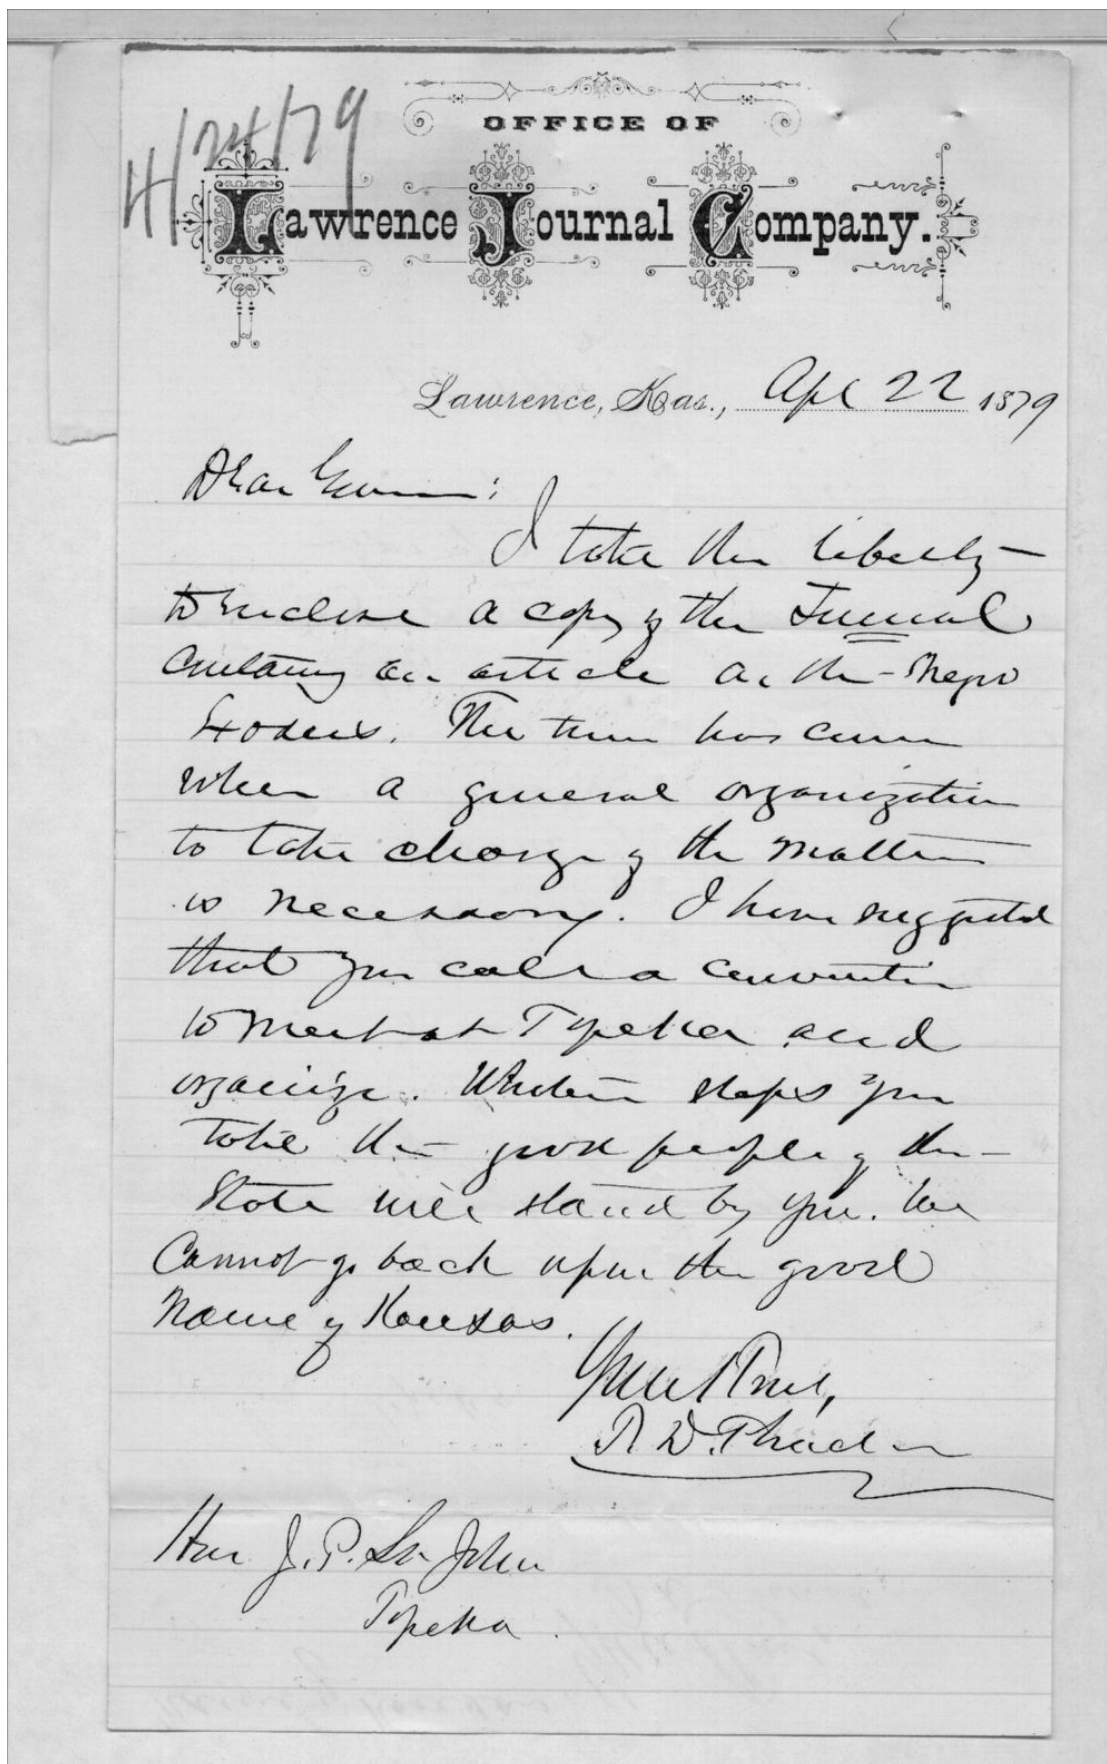 4/24/79
OFFICE OF
Lawrence Journal Company.
Lawrence, Kas., Apl 22 1879
Dear Governor:
I take the liberty
to enclose a copy of the Journal
containing an article on the Negro
Exodus. The time has come
when a general organization
to take charge of the matter
is necessary. I have suggested
that you call a convention
to meet at Topeka and
organize. Whatever steps you
take the good people of the
State will stand by you. We
cannot go back upon the good
name of Kansas.
Yours Truly,
T. D. Thacher
Hon J. P. St. John
Topeka.